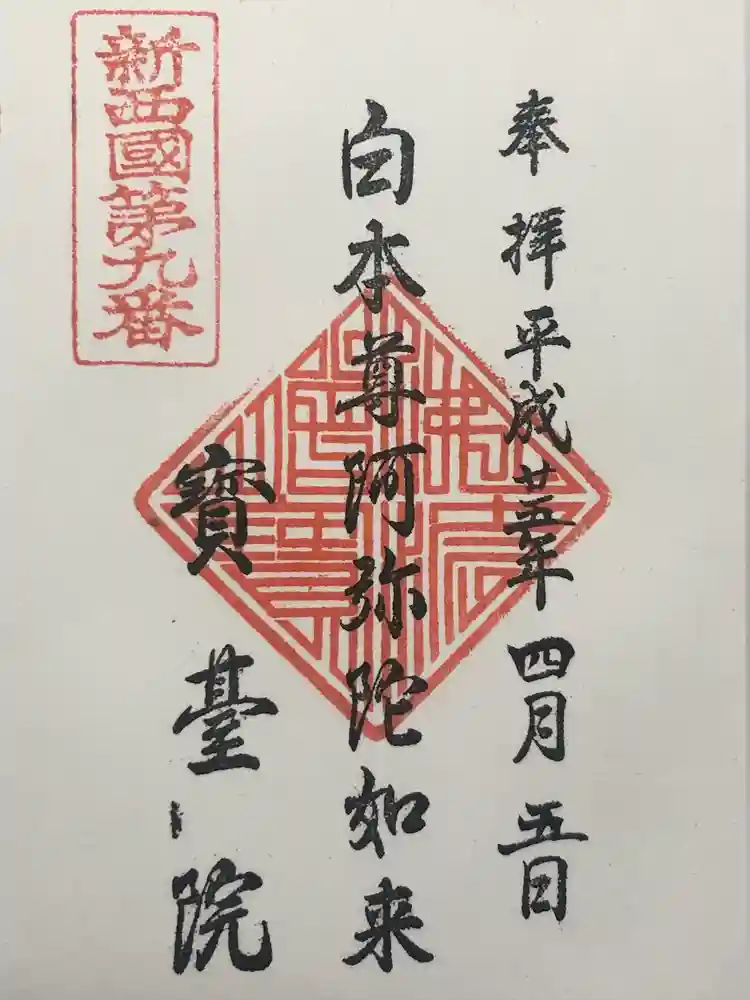 奉拝 平成廿五年四月五日
白本尊阿弥陀如来
寳臺院
新西國第九番
佛法僧寶